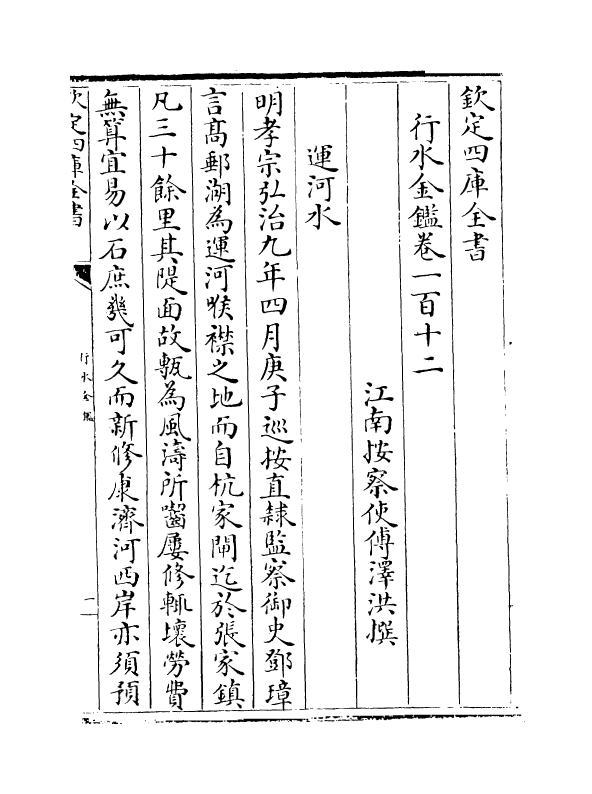 欽定四庫全書
行水金鑑卷一百十二
江南按察使傅澤洪撰
運河水
明孝宗弘治九年四月庚子巡按直隸監察御史鄧璋
言高郵湖為運河喉襟之地而自杭家閘迄於張家鎮
凡三十餘里其隄面故甎為風濤所齧屢修輒壞勞費
無算宜易以石庶幾可久而新修康濟河西岸亦須預
欽定四庫全書
行水金鑑
一